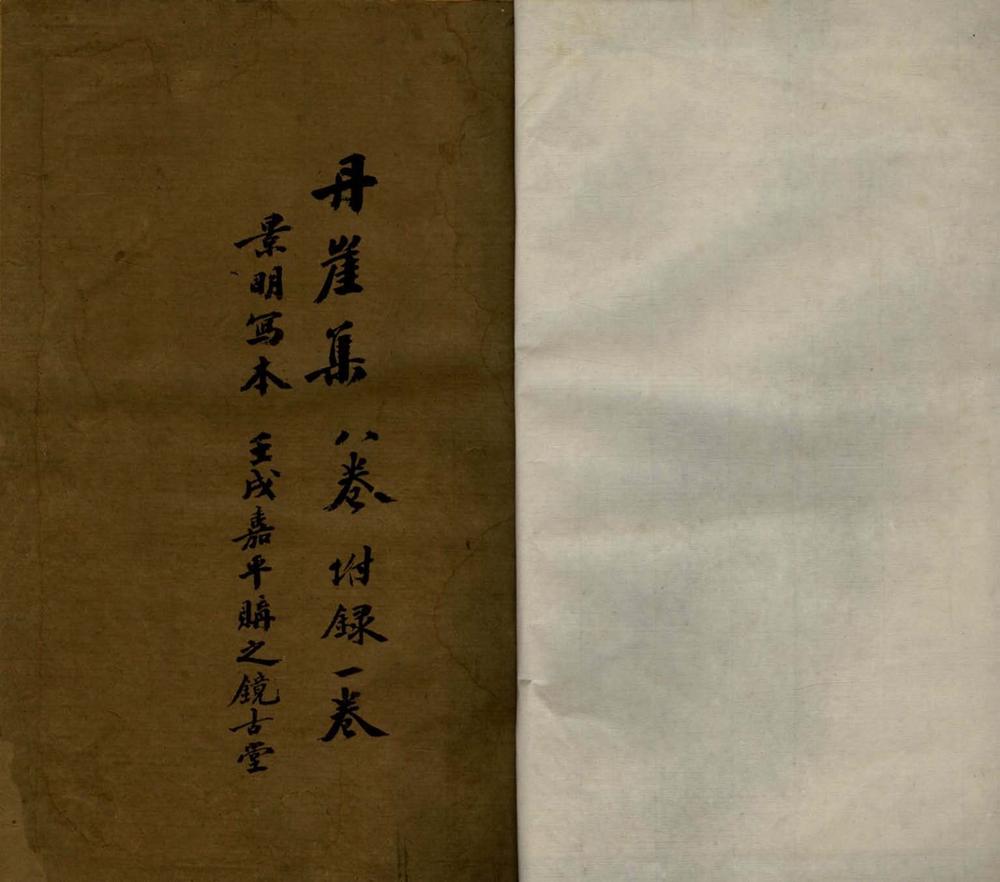 丹崖集八卷 坿録一卷
景明写本 壬戌嘉平購之鏡古堂